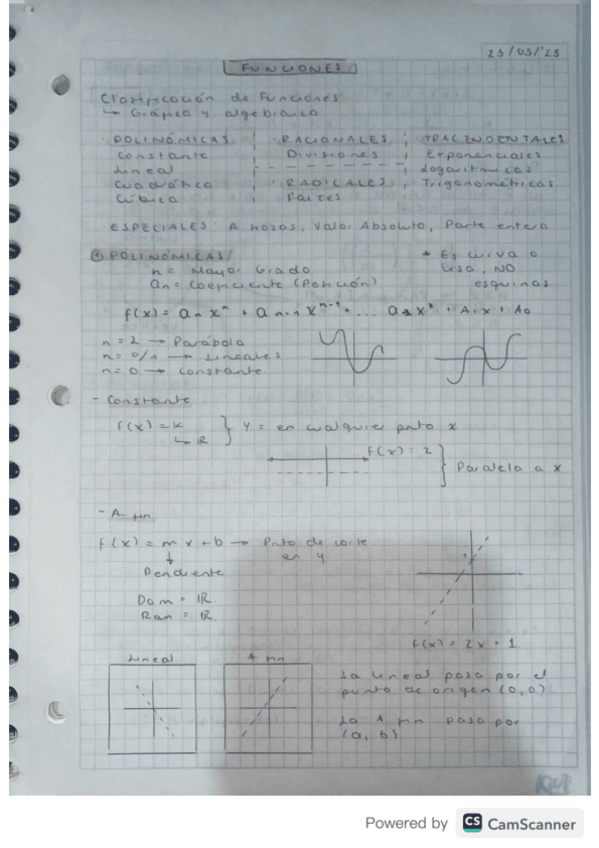 23/03/23
FUNCIONES
Clasificación de Funciones
↳ Gráfica y algebraica
POLINÓMICAS RACIONALES TRACENDENTALES
Constante Divisiones Exponenciales
Lineal Logaritmicas
Cuadrática RADICALES Trigonométricas
Cúbica Partes
ESPECIALES: A trozos, Valor Absoluto, Parte entera
POLINÓMICAS * Es curva o
n = Mayor Grado lisa, NO
an = Coeficiente (Posición) esquinas
f(x) = an xⁿ + an-1 xⁿ⁻¹ + ... a2x² + A1x + A0
n = 2 → Parábola
n = 0/1 → Lineales
n = 0 → Constante
- Constante
f(x) = K } y = en cualquier pnto x
↳ IR
f(x) = 2 } Paralela a x
- Afin
f(x) = mx + b → Pnto de corte
en y
Pendiente
Dom = IR.
Ran = IR.
f(x) = 2x + 1
Lineal Afin
La lineal pasa por el
punto de origen (0,0)
La Afin pasa por
(a, b)
Powered by CS CamScanner